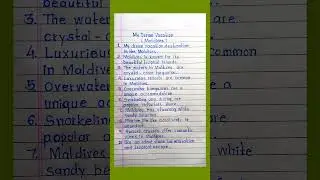 beautiful
3. The water
crystal-c
4. Luxurious
in Maldive
5. Overwater
unique a
6. Snorkeling
popular
7. Maldives
sandy be
My Dream Vacation
(Maldives)
1. My dream vacation destination
is the Maldives.
2. Maldives is known for its
beautiful tropical islands.
3. The waters in Maldives are
crystal-clear turquoise.
4. Luxurious resorts are common
in Maldives.
5. Overwater bungalows are a
unique accommodation.
6. Snorkeling and diving are
popular activities there.
7. Maldives has stunning white
sandy beaches.
8. Marine life like coral reefs is
abundant.
9. Sunset cruises offer romantic
views to couples.
10. an ideal place for relaxation
and tropical escape.
are
common
a
white